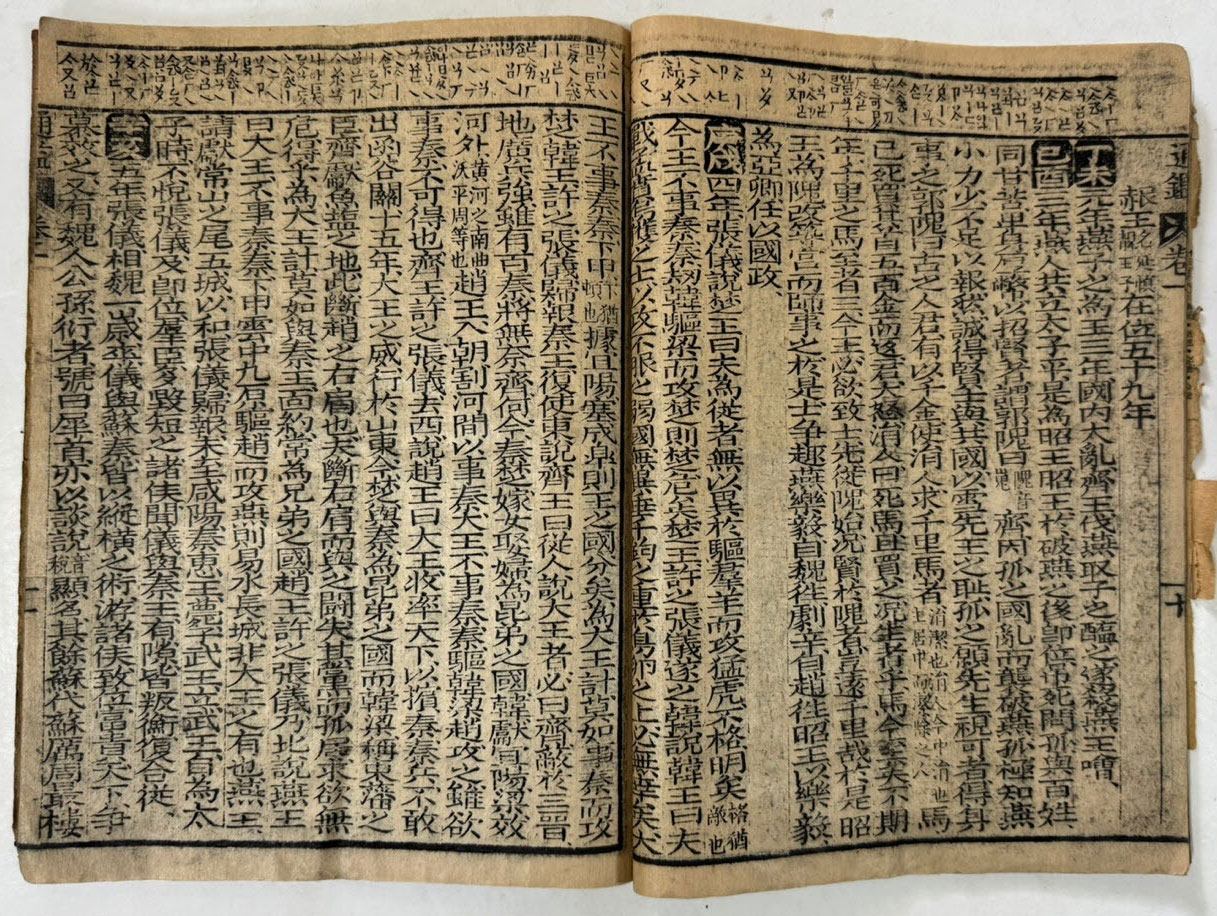 通鑑 卷一 十
赧王 名延愼靚王子 在位五十九年
丁未 元年燕子之為王三年國內大亂齊王伐燕取子之醢之遂殺燕王噲
己酉 三年燕人共立太子平是為昭王昭王於破燕之後卽位弔死問孤與百姓
同甘苦卑身厚幣以招賢者謂郭隗曰 隗音 齊因孤之國亂而襲破燕孤極知燕
小力少不足以報然誠得賢士與共國以雪先王之恥孤之願先生視可者得身
事之郭隗曰古之人君有以千金使涓人求千里馬者 涓潔也涓人今中涓也主居中 潔除之人 馬
已死買其首五百金而返君大怒涓人曰死馬且買之况生者乎馬今至矣不期
年千里之馬至者三今王必欲致士先從隗始况賢於隗者豈遠千里哉於是昭
王為隗改築宮而師事之於是士爭趣燕樂毅自魏往劇辛自趙往昭王以樂毅
為亞卿任以國政
庚戌 四年張儀說楚王曰夫為從者無以異於驅羣羊而攻猛虎不格明矣 格猶敵也
今王不事秦秦劫韓驅梁而攻楚則楚危矣楚王許之張儀遂之韓說韓王曰夫
戰孟賁烏獲之士以攻不服之弱國無異垂千鈞之重於鳥卵之上必無幸矣大
王不事秦秦下甲 頓也 據宜陽塞成皐則王之國分矣為大王計莫如事秦而攻
楚韓王許之張儀歸報秦王復使東說齊王曰從人說大王者必曰齊蔽於三晉
地廣兵強雖有百秦將無奈齊何今秦楚嫁女娶婦為昆弟之國韓獻宜陽梁效
河外 黃河之南曲沃平周等也 趙王入朝割河間以事秦大王不事秦秦驅韓梁趙攻之雖欲
事秦不可得也齊王許之張儀去西說趙王曰大王收率天下以擯秦秦兵不敢
出函谷關十五年大王之威行於山東今楚與秦為昆弟之國而韓梁稱東藩之
臣齊獻魚鹽之地此斷趙之右肩也夫斷右肩而與人鬪失其黨而孤居求欲無
危得乎為大王計莫如與秦王面約常為兄弟之國趙王許之張儀乃北說燕王
曰大王不事秦秦下甲雲中九原驅趙而攻燕則易水長城非大王之有也燕王
請獻常山之尾五城以和張儀歸報未至咸陽秦惠王薨子武王立武王自為太
子時不悅張儀及卽位羣臣多毀短之諸侯聞儀與秦王有隙皆叛衡復合從
五年張儀相魏一歲卒儀與蘇秦皆以縱橫之術游諸侯致位富貴天下爭
慕效之又有魏人公孫衍者號曰犀首亦以談說 音稅 顯名其餘蘇代蘇厲周最樓